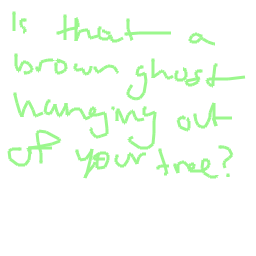 Is that a
brown ghost
hanging out
of your tree?